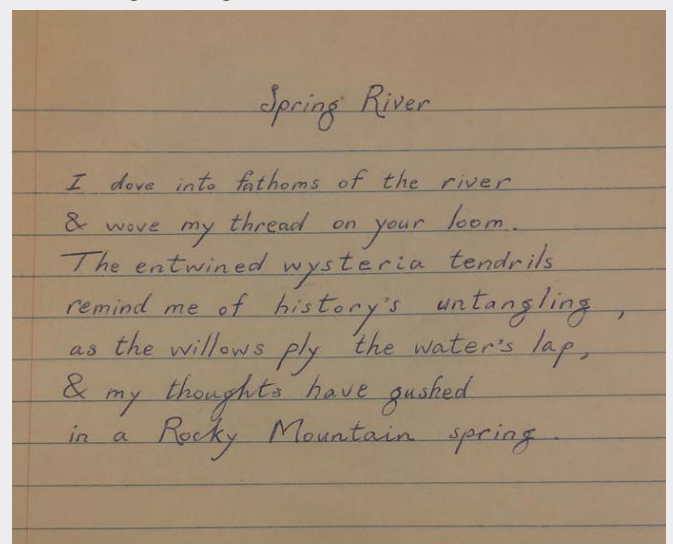 Spring River
I dove into fathoms of the river
& wove my thread on your loom.
The entwined wysteria tendrils
remind me of history's untangling,
as the willows ply the water's lap,
& my thoughts have gushed
in a Rocky Mountain spring.